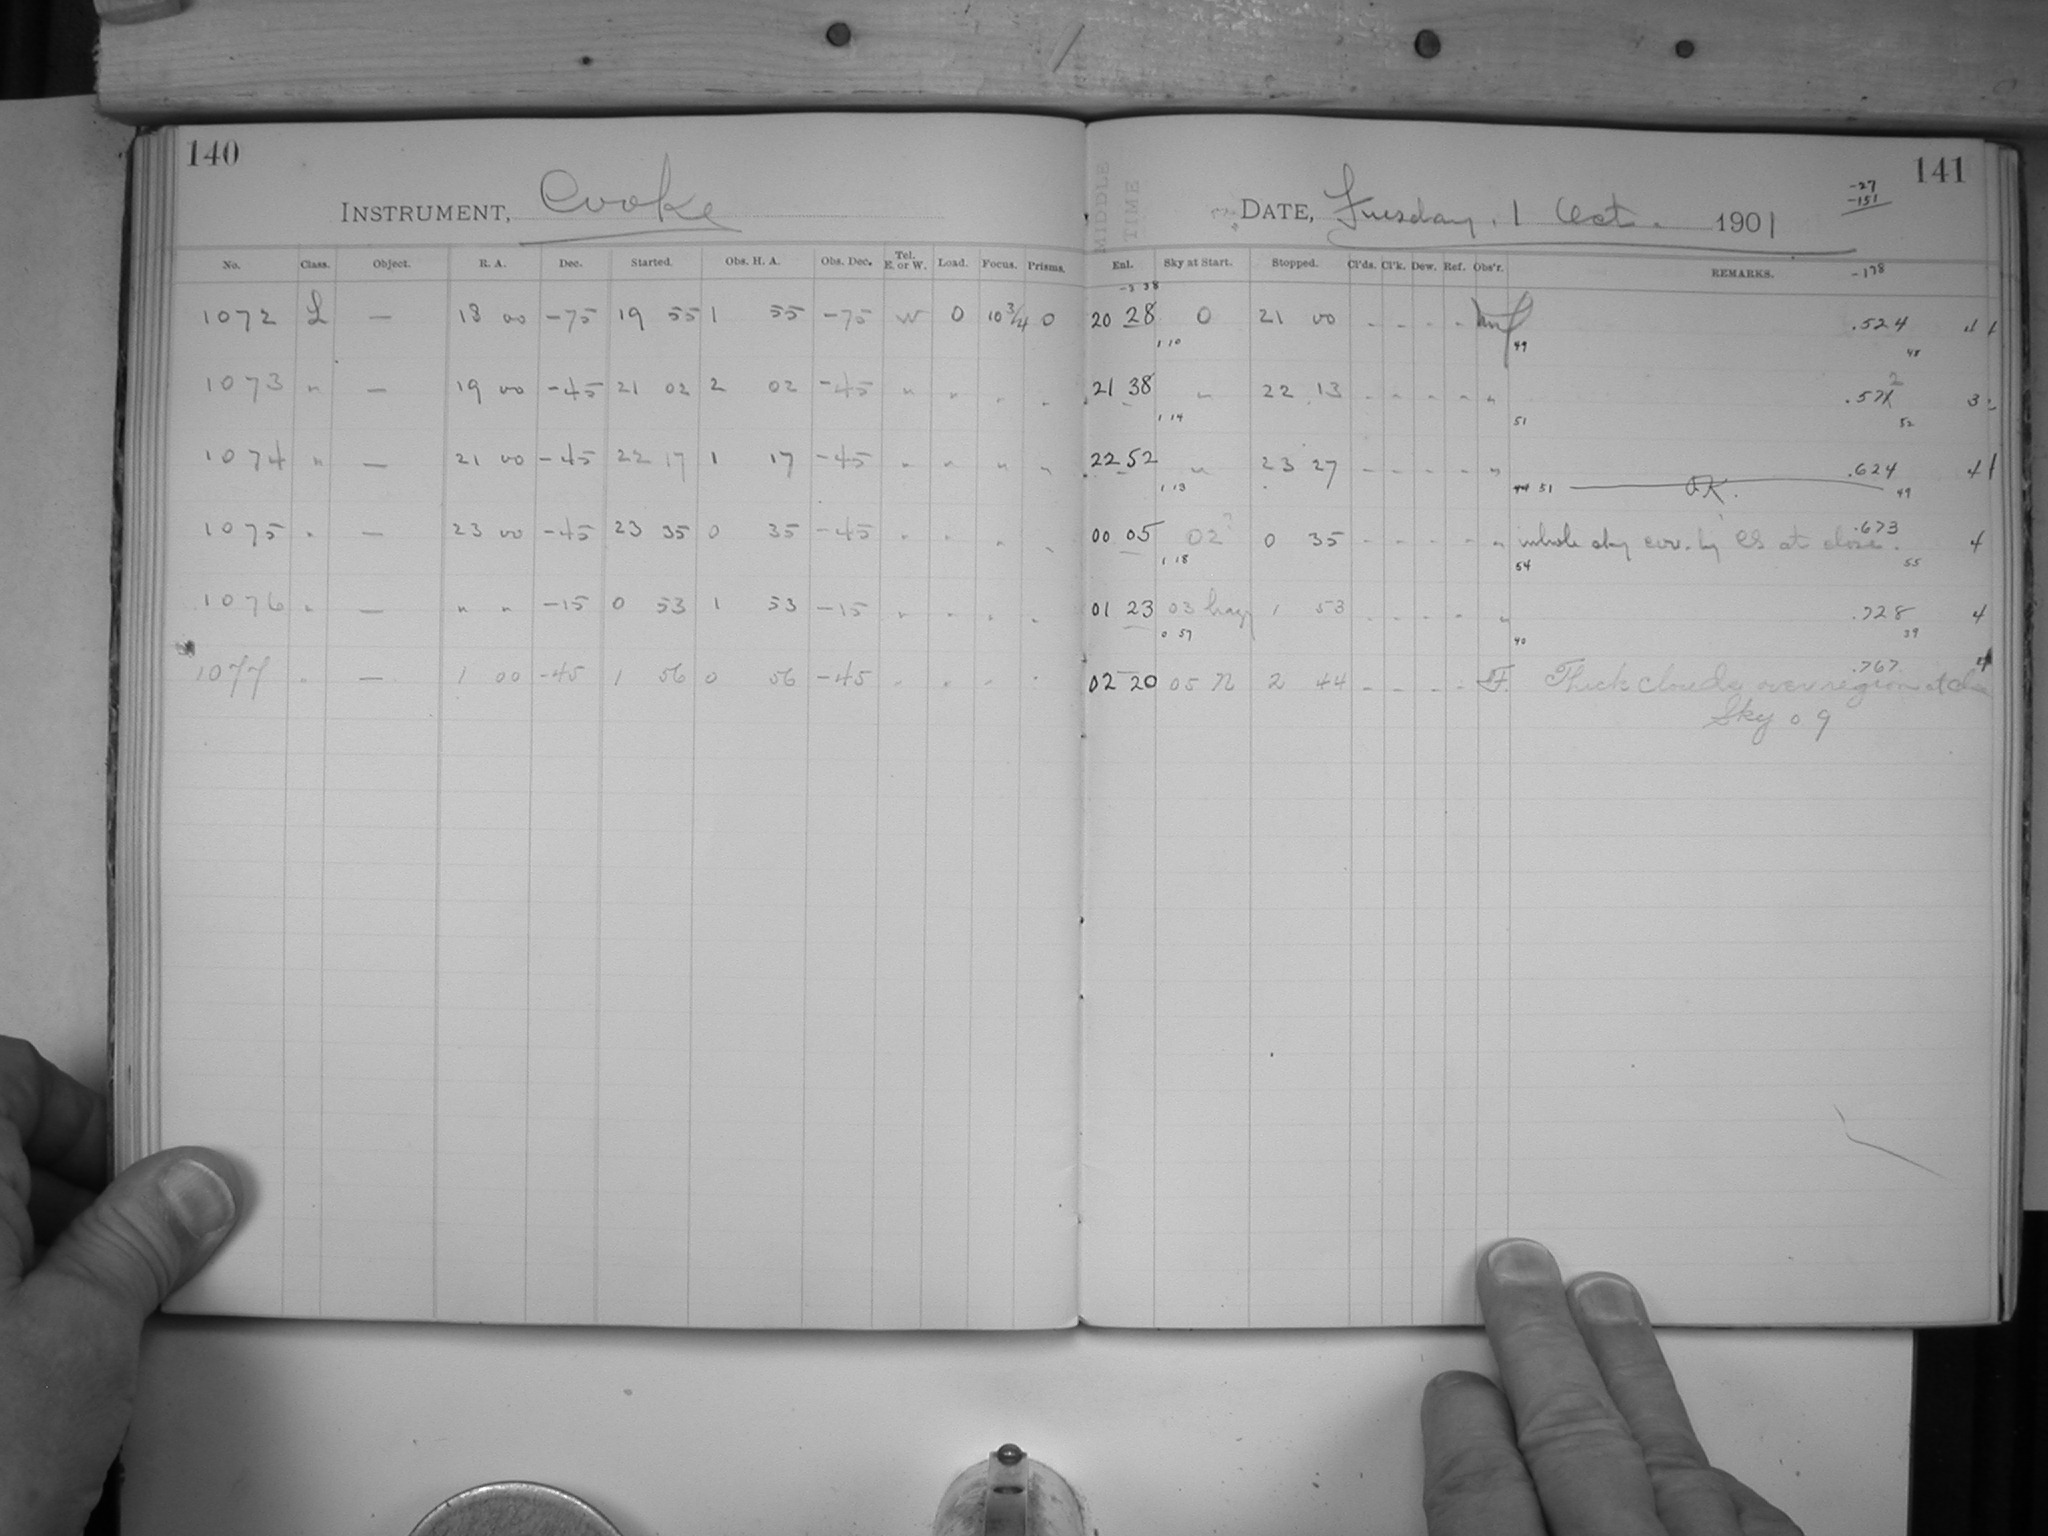 140
INSTRUMENT, Cooke
No. Class. Object. R. A. Dec. Started. Obs. H. A. Obs. Dec. Tel. E. or W. Load. Focus. Prisms.
1072 L — 18 00 -75 19 55 1 55 -75 W 0 10 3/4 0
1073 " — 19 00 -45 21 02 2 02 -45 " " " "
1074 " — 21 00 -45 22 17 1 17 -45 " " " "
1075 " — 23 00 -45 23 35 0 35 -45 " " " "
1076 " — " " -15 0 53 1 53 -15 " " " "
1077 " — 1 00 -45 1 56 0 56 -45 " " " "
141
MIDDLE TIME
DATE, Tuesday, 1 Oct. 1901
-27
-151
-178
Enl. Sky at Start. Stopped. Cl'ds. Cl'k. Dew. Ref. Obs'r. REMARKS.
20 28 0 21 00 - - - - .524 4
1 10 49 48
21 38 " 22 13 - - - - " .572 3
1 14 51 52
22 52 " 23 27 - - - - " .624 4
1 13 51 OK. 49
00 05 02? 0 35 - - - - " whole sky cov. by CS at close. .673 4
1 18 54 55
01 23 03 hazy 1 53 - - - - " .728 4
0 57 40 39
02 20 05 N 2 44 - - - - F. Thick clouds over region at .767 4
Sky 09